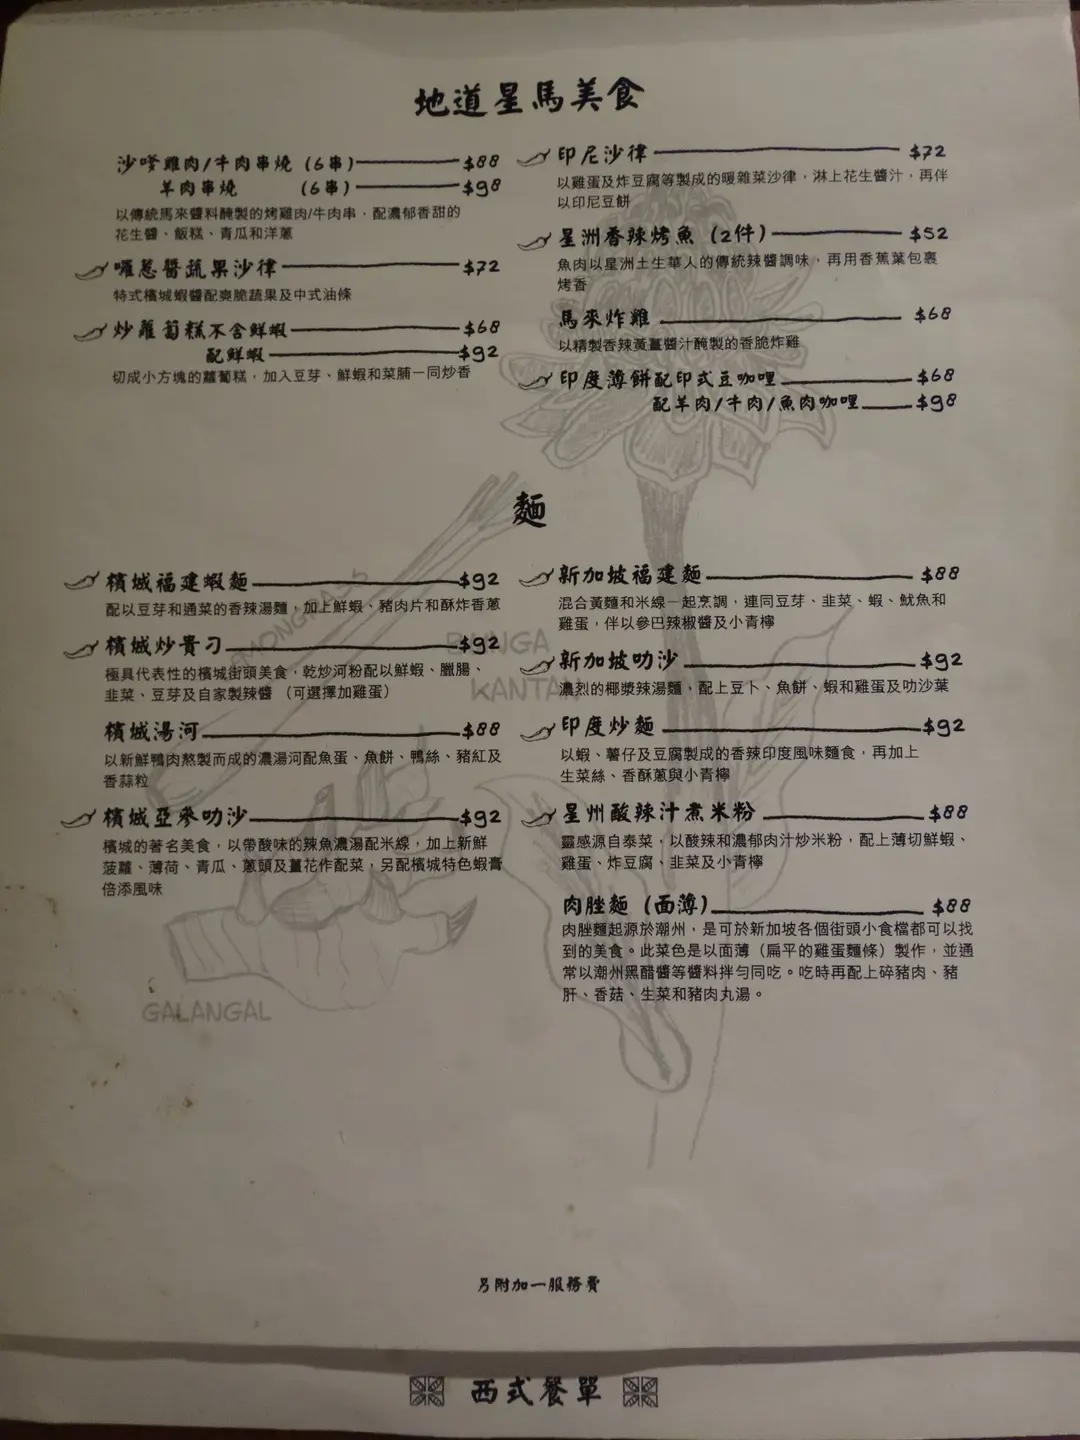 地道星馬美食
沙嗲雞肉/牛肉串燒 (6串) $88
羊肉串燒 (6串) $98
以傳統馬來醬料醃製的烤雞肉/牛肉串，配濃郁香甜的
花生醬、飯糕、青瓜和洋蔥
囉惹醬蔬果沙律 $72
特式檳城蝦醬配爽脆蔬果及中式油條
炒蘿蔔糕不含鮮蝦 $68
配鮮蝦 $92
切成小方塊的蘿蔔糕，加入豆芽、鮮蝦和菜脯一同炒香
印尼沙律 $72
以雞蛋及炸豆腐等製成的暖雜菜沙律，淋上花生醬汁，再伴
以印尼豆餅
星洲香辣烤魚 (2件) $52
魚肉以星洲土生華人的傳統辣醬調味，再用香蕉葉包裹
烤香
馬來炸雞 $68
以精製香辣黃薑醬汁醃製的香脆炸雞
印度薄餅配印式豆咖哩 $68
配羊肉/牛肉/魚肉咖哩 $98
麵
檳城福建蝦麵 $92
配以豆芽和通菜的香辣湯麵，加上鮮蝦、豬肉片和酥炸香蔥
檳城炒貴刁 $92
極具代表性的檳城街頭美食，乾炒河粉配以鮮蝦、臘腸、
韭菜、豆芽及自家製辣醬 （可選擇加雞蛋）
檳城湯河 $88
以新鮮鴨肉熬製而成的濃湯河配魚蛋、魚餅、鴨絲、豬紅及
香蒜粒
檳城亞參叻沙 $92
檳城的著名美食，以帶酸味的辣魚濃湯配米線，加上新鮮
菠蘿、薄荷、青瓜、蔥頭及薑花作配菜，另配檳城特色蝦膏
倍添風味
新加坡福建麵 $88
混合黃麵和米線一起烹調，連同豆芽、韭菜、蝦、魷魚和
雞蛋，伴以參巴辣椒醬及小青檸
新加坡叻沙 $92
濃烈的椰漿辣湯麵，配上豆卜、魚餅、蝦和雞蛋及叻沙葉
印度炒麵 $92
以蝦、薯仔及豆腐製成的香辣印度風味麵食，再加上
生菜絲、香酥蔥與小青檸
星州酸辣汁煮米粉 $88
靈感源自泰菜，以酸辣和濃郁肉汁炒米粉，配上薄切鮮蝦、
雞蛋、炸豆腐、韭菜及小青檸
肉脞麵 (面薄) $88
肉脞麵起源於潮州，是可於新加坡各個街頭小食檔都可以找
到的美食。此菜色是以面薄（扁平的雞蛋麵條）製作，並通
常以潮州黑醋醬等醬料拌勻同吃。吃時再配上碎豬肉、豬
肝、香菇、生菜和豬肉丸湯。
KANTAN
GALANGAL
另附加一服務費
西式餐單